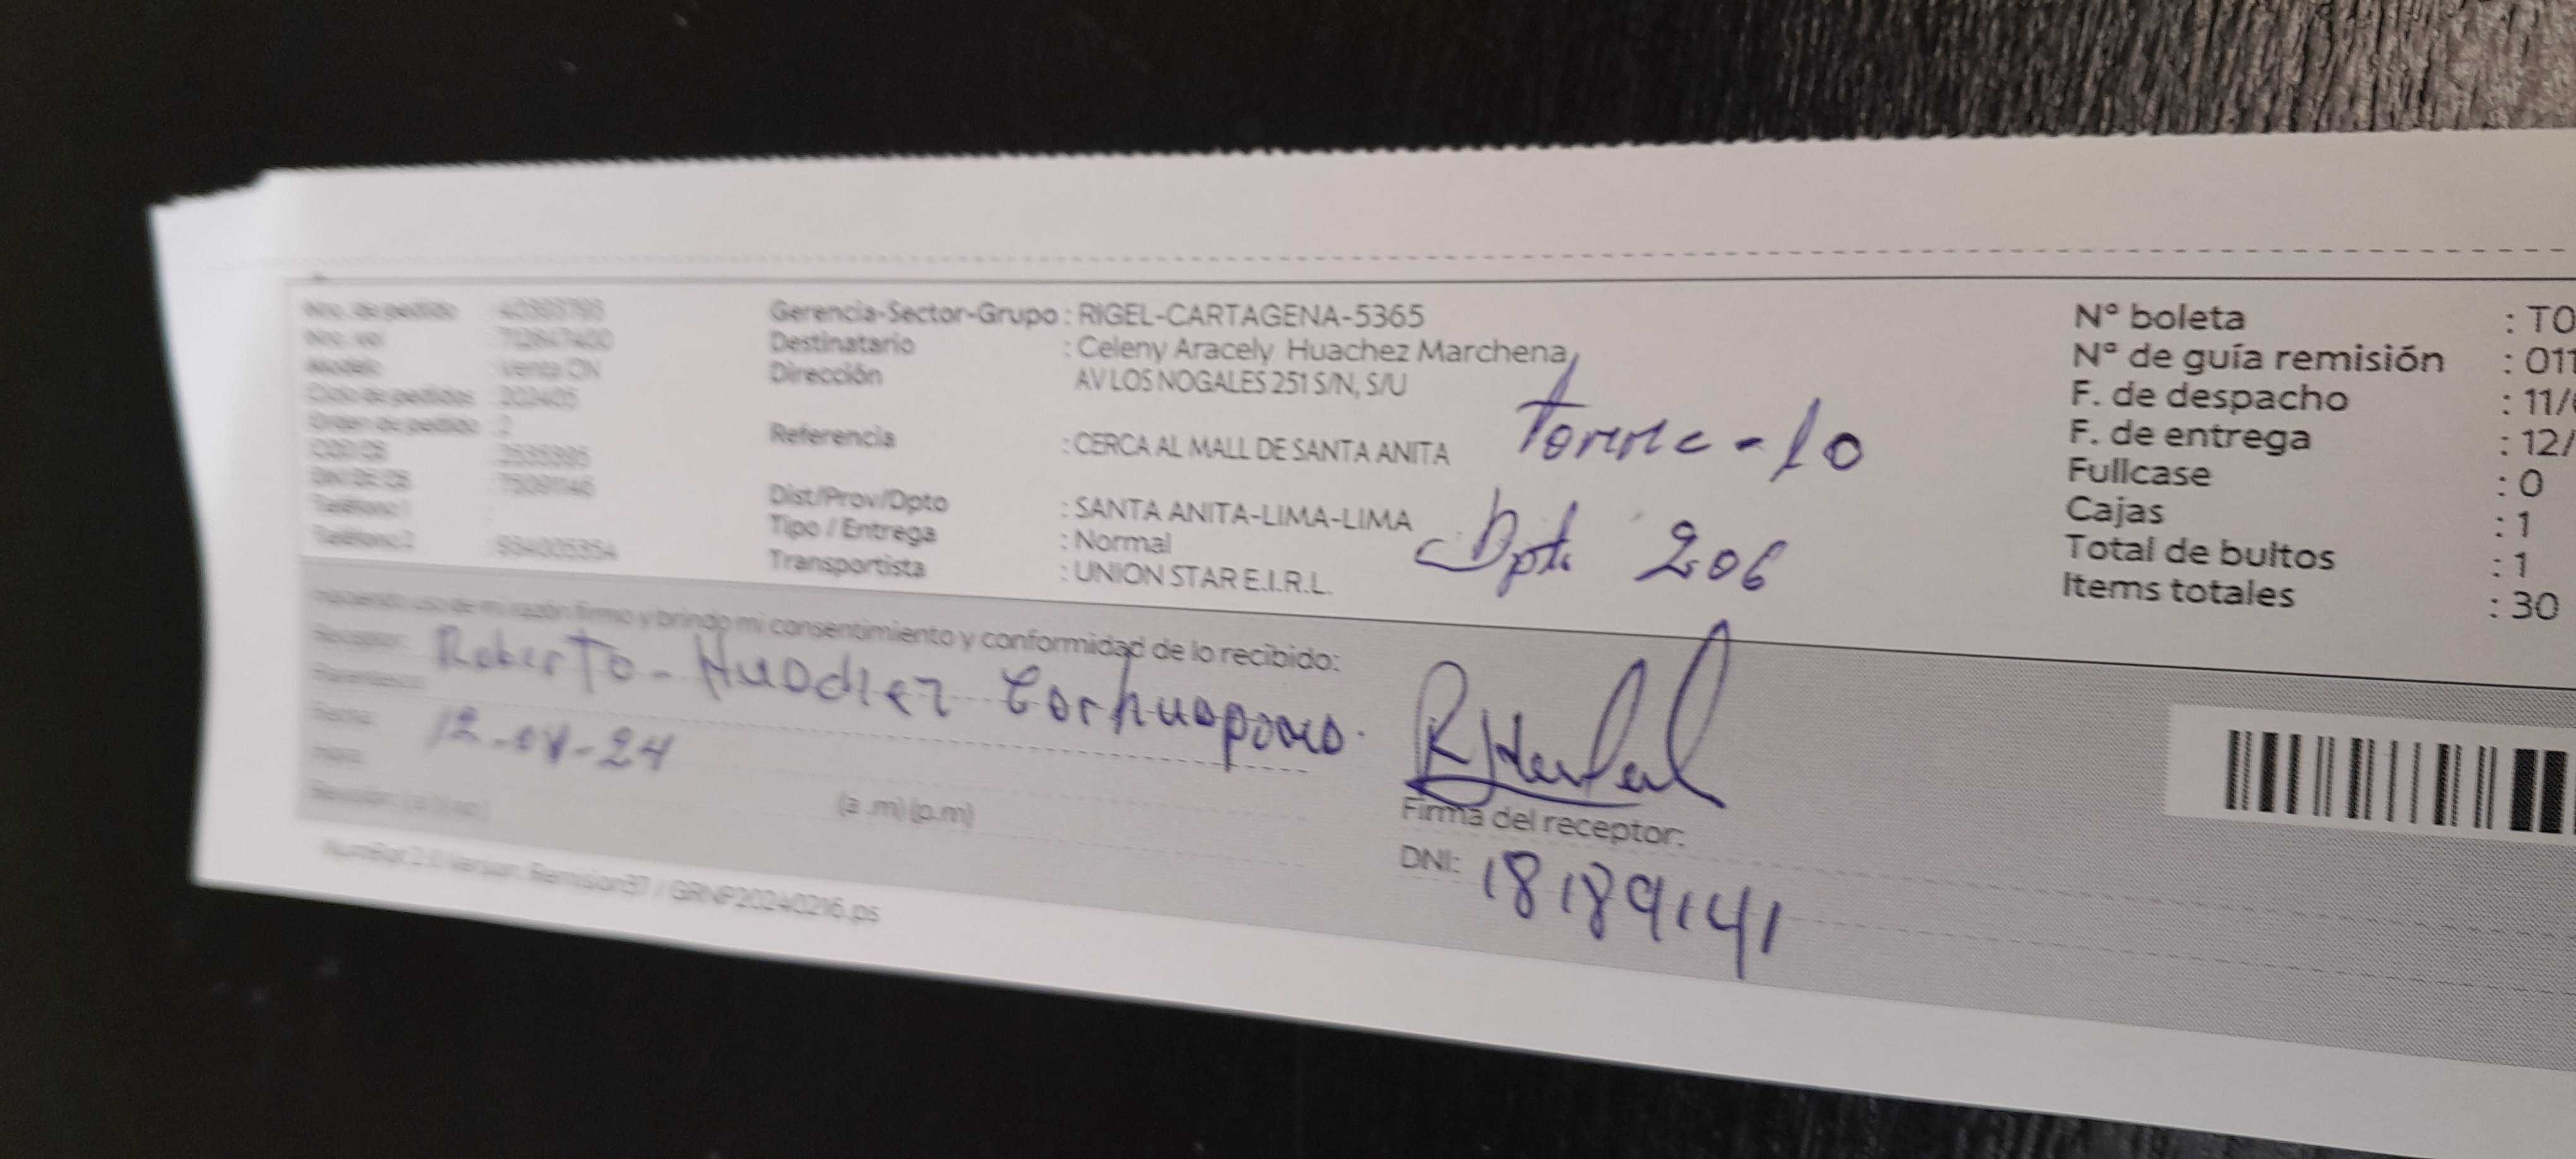 Nro. de pedido
Nro. vol
Modelo : Venta CN
Ciclo de pedidos : 202405
Orden de pedido : 2
Gerencia-Sector-Grupo : RIGEL-CARTAGENA-5365
Destinatario : Celeny Aracely Huachez Marchena
Dirección AV LOS NOGALES 251 S/N, S/U
Referencia : CERCA AL MALL DE SANTA ANITA
Dist/Prov/Dpto : SANTA ANITA-LIMA-LIMA
Tipo / Entrega : Normal
Transportista : UNION STAR E.I.R.L.
Torre - 10
Dpto 206
N° boleta : T0
N° de guía remisión : 011
F. de despacho : 11/
F. de entrega : 12/
Fullcase : 0
Cajas : 1
Total de bultos : 1
Items totales : 30
Haciendo uso de mi razón firmo y brindo mi consentimiento y conformidad de lo recibido:
Receptor: Roberto - Huachez
Fecha: 12-04-24
(a .m) (p.m)
Firma del receptor:
DNI: 18189141
GRNP20240216.ps